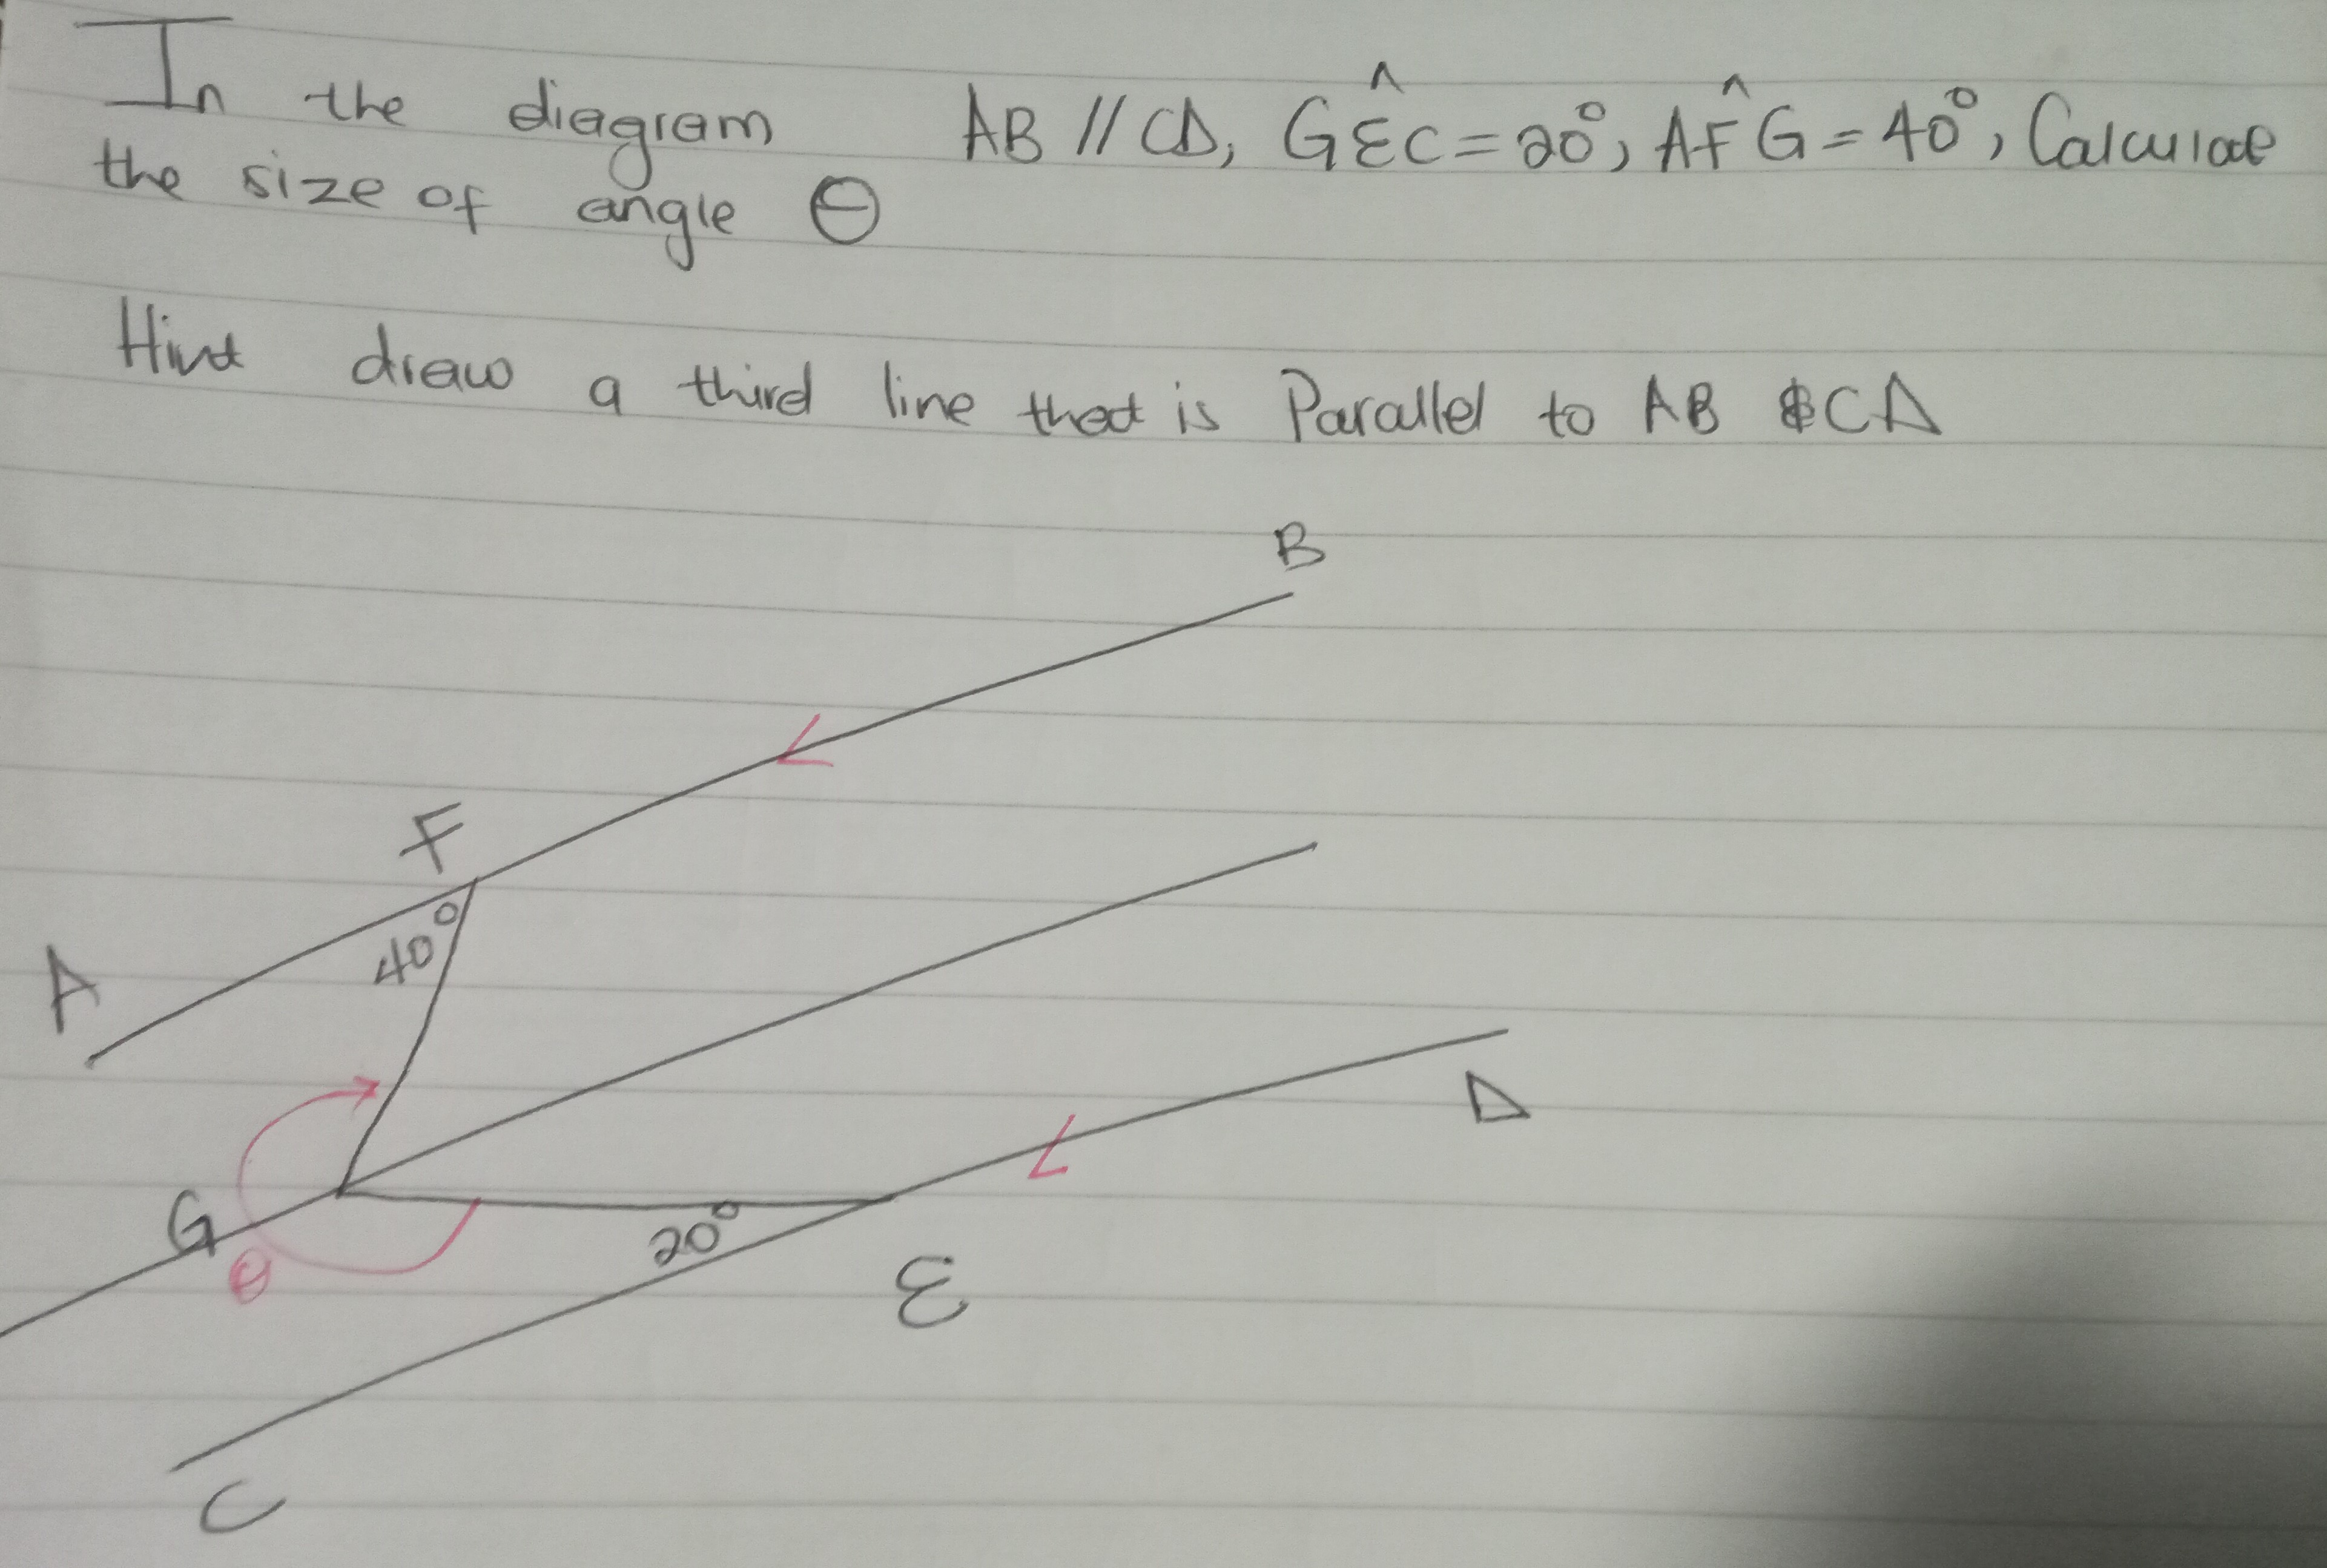 In the diagram AB // CD, GÊC = 20°, AF̂G = 40°, Calculate
the size of angle θ
Hint draw a third line that is Parallel to AB & CD
B
F
40°
A
D
G
θ
20°
E
C